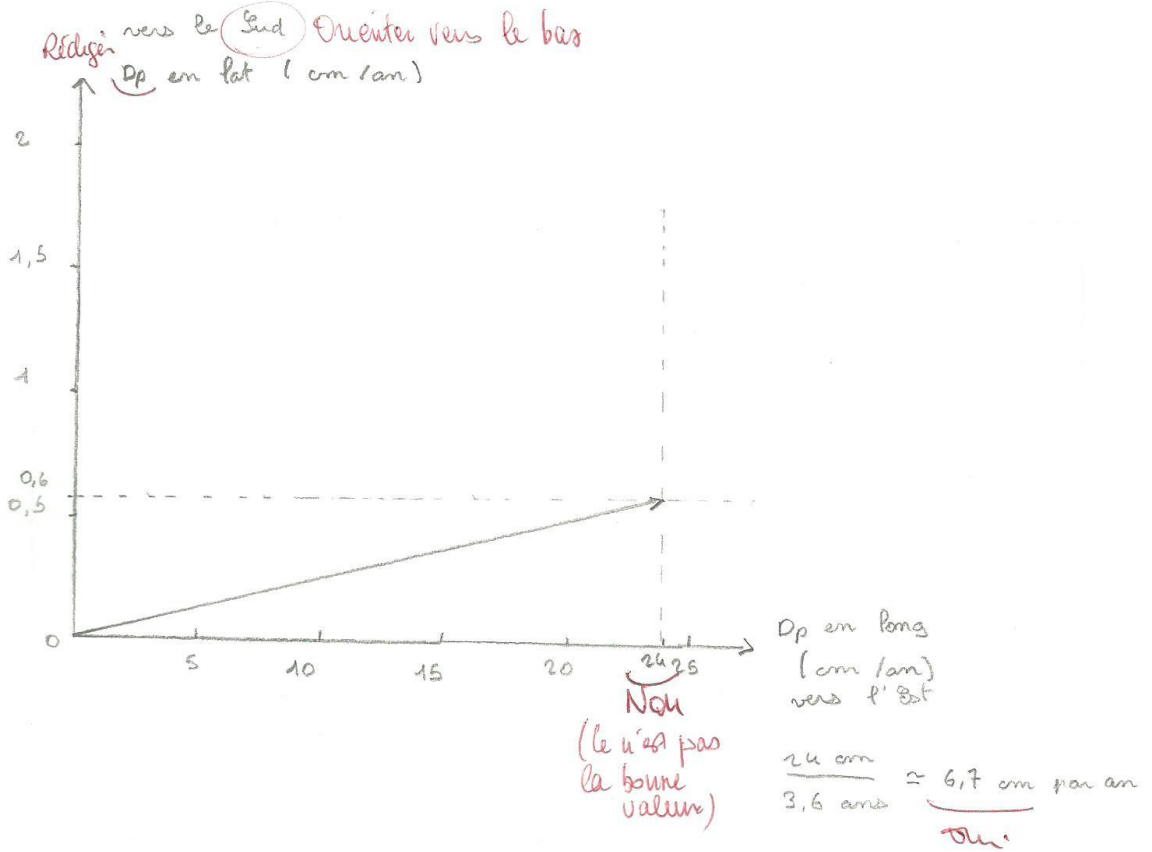 vers le Sud Orienter vers le bas
Rédiger
Dp en lat (cm/an)
2
1,5
1
0,6
0,5
0
5 10 15 20 24 25
Dp en long
(cm/an)
vers l'Est
Non
(Ce n'est pas
la bonne
valeur)
24 cm
3,6 ans
≃ 6,7 cm par an
Oui.